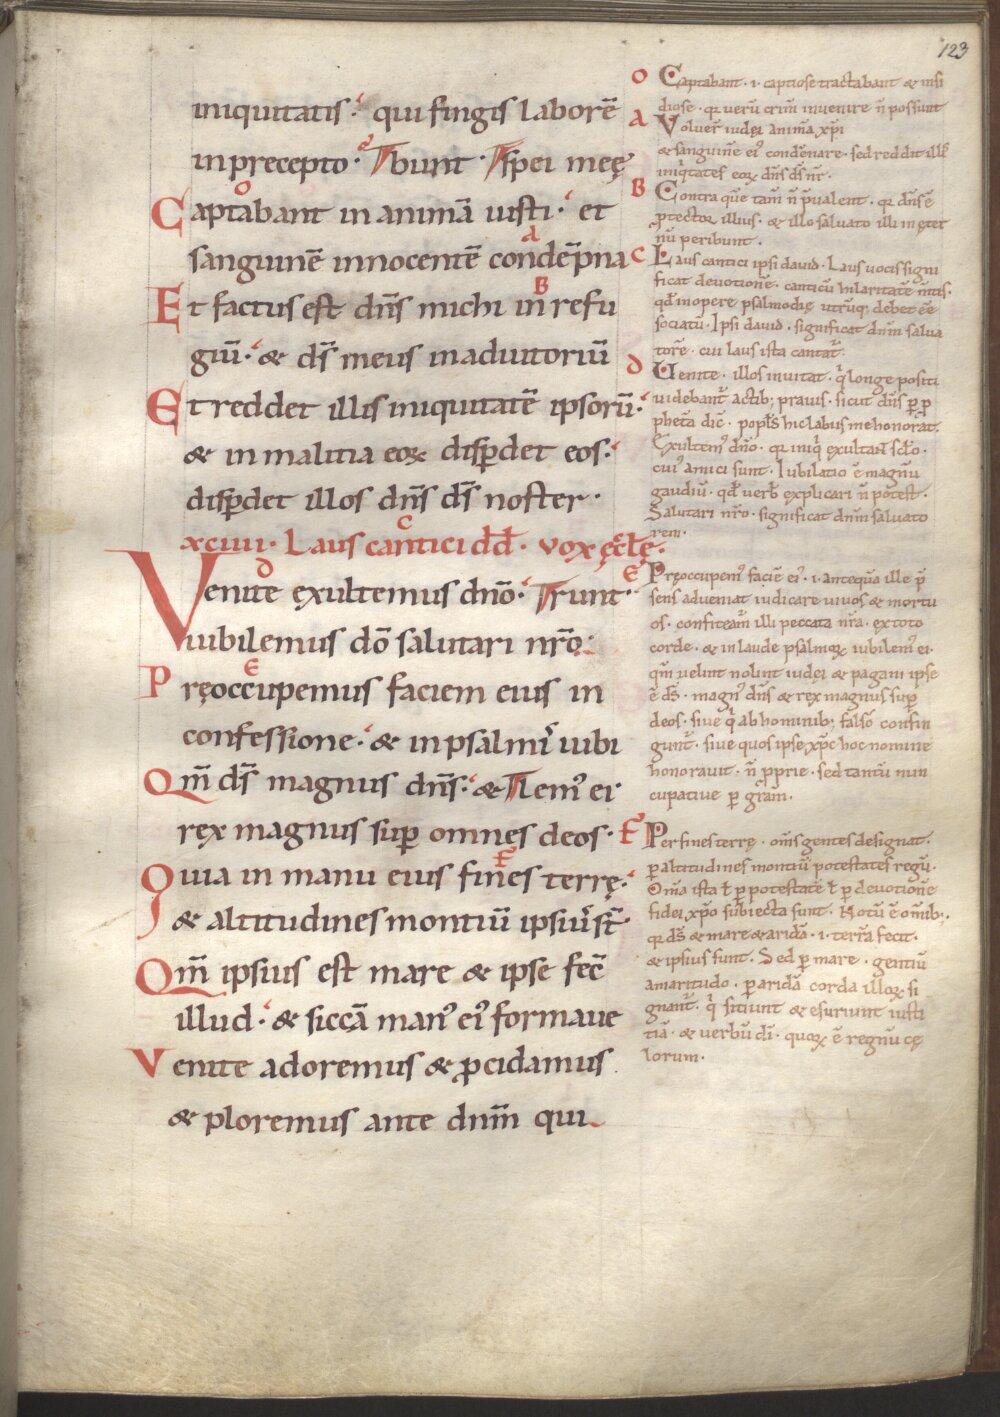 123
iniquitatis · qui fingis laborē
in precepto · bunt · spei meę
Captabant in animā iusti · et
sanguinē innocentē condēpna
Et factus est dn̄s michi in refu
giū · & ds̄ meus in adiutoriū
Et reddet illis iniquitatē ipsorū ·
& in malitia eoꝝ disꝑdet eos ·
disꝑdet illos dn̄s ds̄ noster ·
xciiii · Laus cantici dd̄ · vox ęcl̄ę ·
Venite ęxultemus dnō · runt
iubilemus dō salutari nr̄o ·
Pręoccupemus faciem eius in
confessione · & in psalmi iubi
Qm̄ ds̄ magnus dn̄s · & lem᾽ ei
ręx magnus suꝑ omnes deos ·
Quia in manu eius fines terrę ·
& altitudines montiū ipsiꝰ st̄ ·
Qm̄ ipsius est mare & ipse fec̄
illud · & siccā manꝰ eiꝰ formaue
Venite adoremus & ꝓcidamus
& ploremus ante dnm̄ qui
o Captabant · i · captiose tractabant & insi
diose · qr uerū crim̄ inuenire n̄ possunt
a Voluer̄ iudęi animā xp̄i
& sanguinē eiꝰ condēnare · sed reddit illis
iniq̇tates eoꝝ dn̄s ds̄ nr̄ ·
B Contra quē tam̄ n̄ p̄ualent · qr dn̄s ē
ꝓtector illius · & illo saluato illi in ęter
nū peribunt ·
C Laus cantici ipsi dauid · Laus uocis signi
ficat deuotionē · canticū hilaritatē m̄tis ·
qd̄ in opere psalmodię utrūq; debet ēē
sociatū · Ipsi dauid · significat dnm̄ salua
torē · cui laus ista cantat᾽ ·
d Venite · illos inuitat · q̇ longe positi
uidebant᾽ actib; prauis · sicut dn̄s ꝑ ꝓ
phetā dic̄ · popl̄s hic labiis me honorat ·
Exultemꝰ dn̄o · qr iniq̇ ęxultant scl̄o ·
cuiꝰ amici sunt · Iubilatio ē magnū
gaudiū · qd̄ uerb̄ explicari n̄ potest ·
Salutari nr̄o · significat dnm̄ saluato
rem ·
E Pręoccupemꝰ faciē eiꝰ · i · antequā ille p̄
sens adueniat iudicare uiuos & mortu
os · confiteam᾽ illi peccata nr̄a · ex toto
corde · & in laude psalmoꝝ iubilemꝰ ei ·
qm̄ uelint nolint iudęi & pagani ipse
ē ds̄ · magnꝰ dn̄s & ręx magnus suꝑ
deos · siue q̇ ab hominib; falso confin
gunt᾽ · siue quos ipse xp̄c hoc nomine
honorauit · n̄ ꝓprie · sed tantū nun
cupatiue ꝑ grām ·
F Per fines terrę · om̄s gentes designat ·
ꝑ altitudines montiū potestates regū ·
Om̄a ista ł ꝑ potestatē ł ꝑ deuotionē
fidei xp̄o subiecta sunt · Notū ē om̄ib; ·
qr ds̄ & mare & aridā · i · terrā fecit ·
& ipsius sunt · Sed ꝑ mare · gentiū
amaritudo · ꝑ aridā corda illoꝝ si
gnant᾽ · q̇ sitiunt & esuriunt iusti
tiā · & uerbū di̅ · quoꝝ ē regnū cę
lorum ·